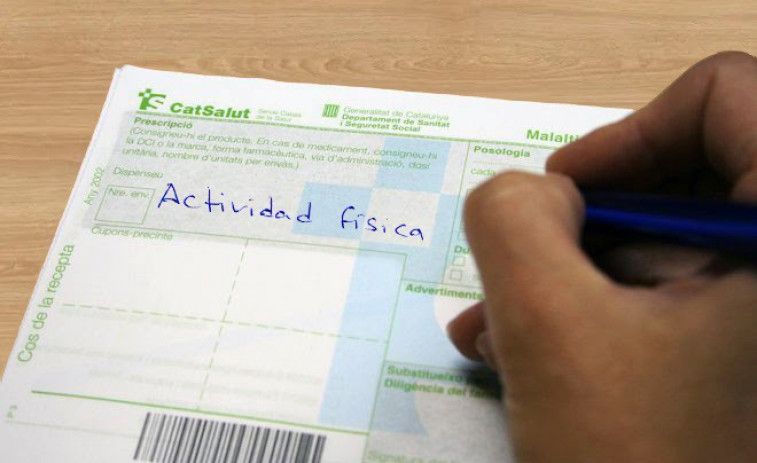 CatSalut Servei Català de la Salut
Generalitat de Catalunya
Departament de Sanitat
i Seguretat Social
Prescripció
(Consigneu-hi el producte. En cas de medicament, consigneu-hi
la DCI o la marca, forma farmacèutica, via d'administració, dosi
unitària, nombre d'unitats per envàs.)
Posologia
cada
Dispenseu
Nre. env.
Actividad física
Any 2002
Cupons-precinte
Cos de la recepta
Advertiments
Diligència del
P3